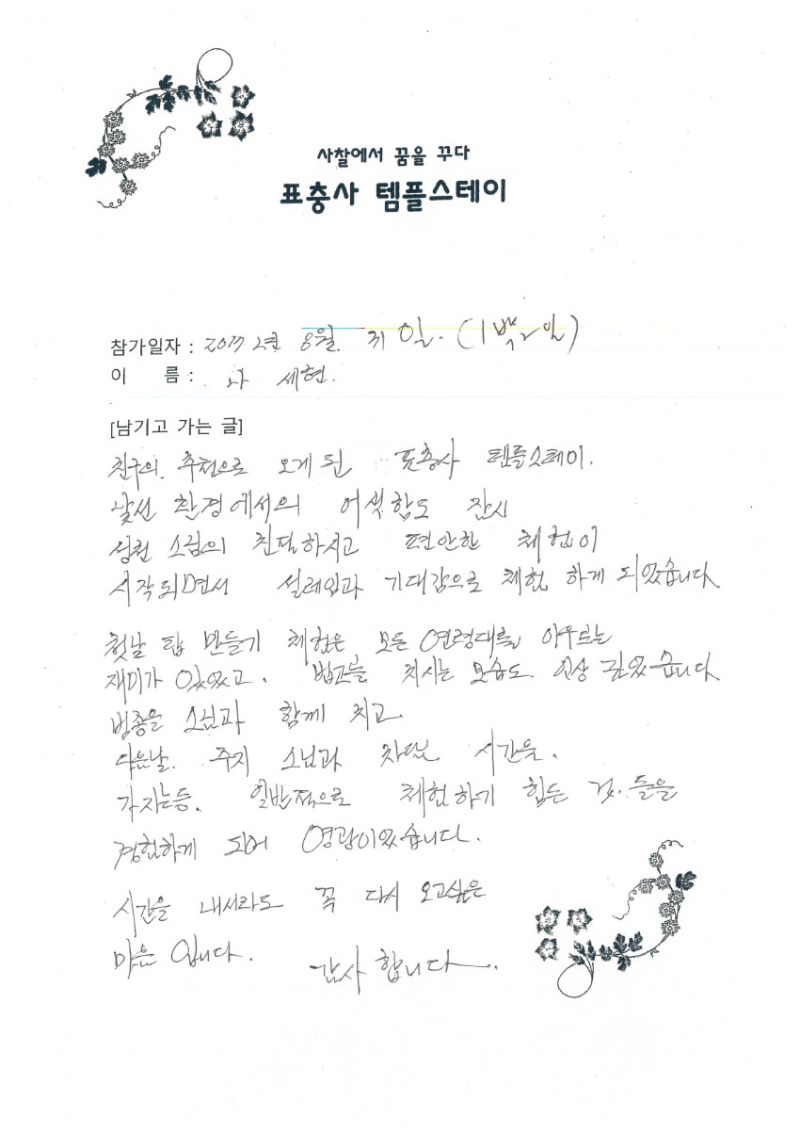 사찰에서 꿈을 꾸다
표충사 템플스테이
참가일자 : 2017 년 8월. 31 일. (1박2일)
이 름 : 나 세현.
[남기고 가는 글]
친구의. 추천으로 오게 된 표충사 템플스테이.
낯선 환경에서의 어색함도 잠시
스님의 친절하시고 편안한 체험이
시작되면서 설레임과 기대감으로 체험 하게 되었습니다
첫날 탑 만들기 체험은 모든 연령대를 아우르는
재미가 있었고. 법고를 치시는 모습도. 인상 깊었습니다
범종을 스님과 함께 치고.
다음날. 주지 스님과 차담 시간을.
가지는등. 일반적으로 체험하기 힘든 것.들을
경험하게 되어 영광이었습니다.
시간을 내서라도 꼭 다시 오고싶은
마음 입니다. 감사 합니다.